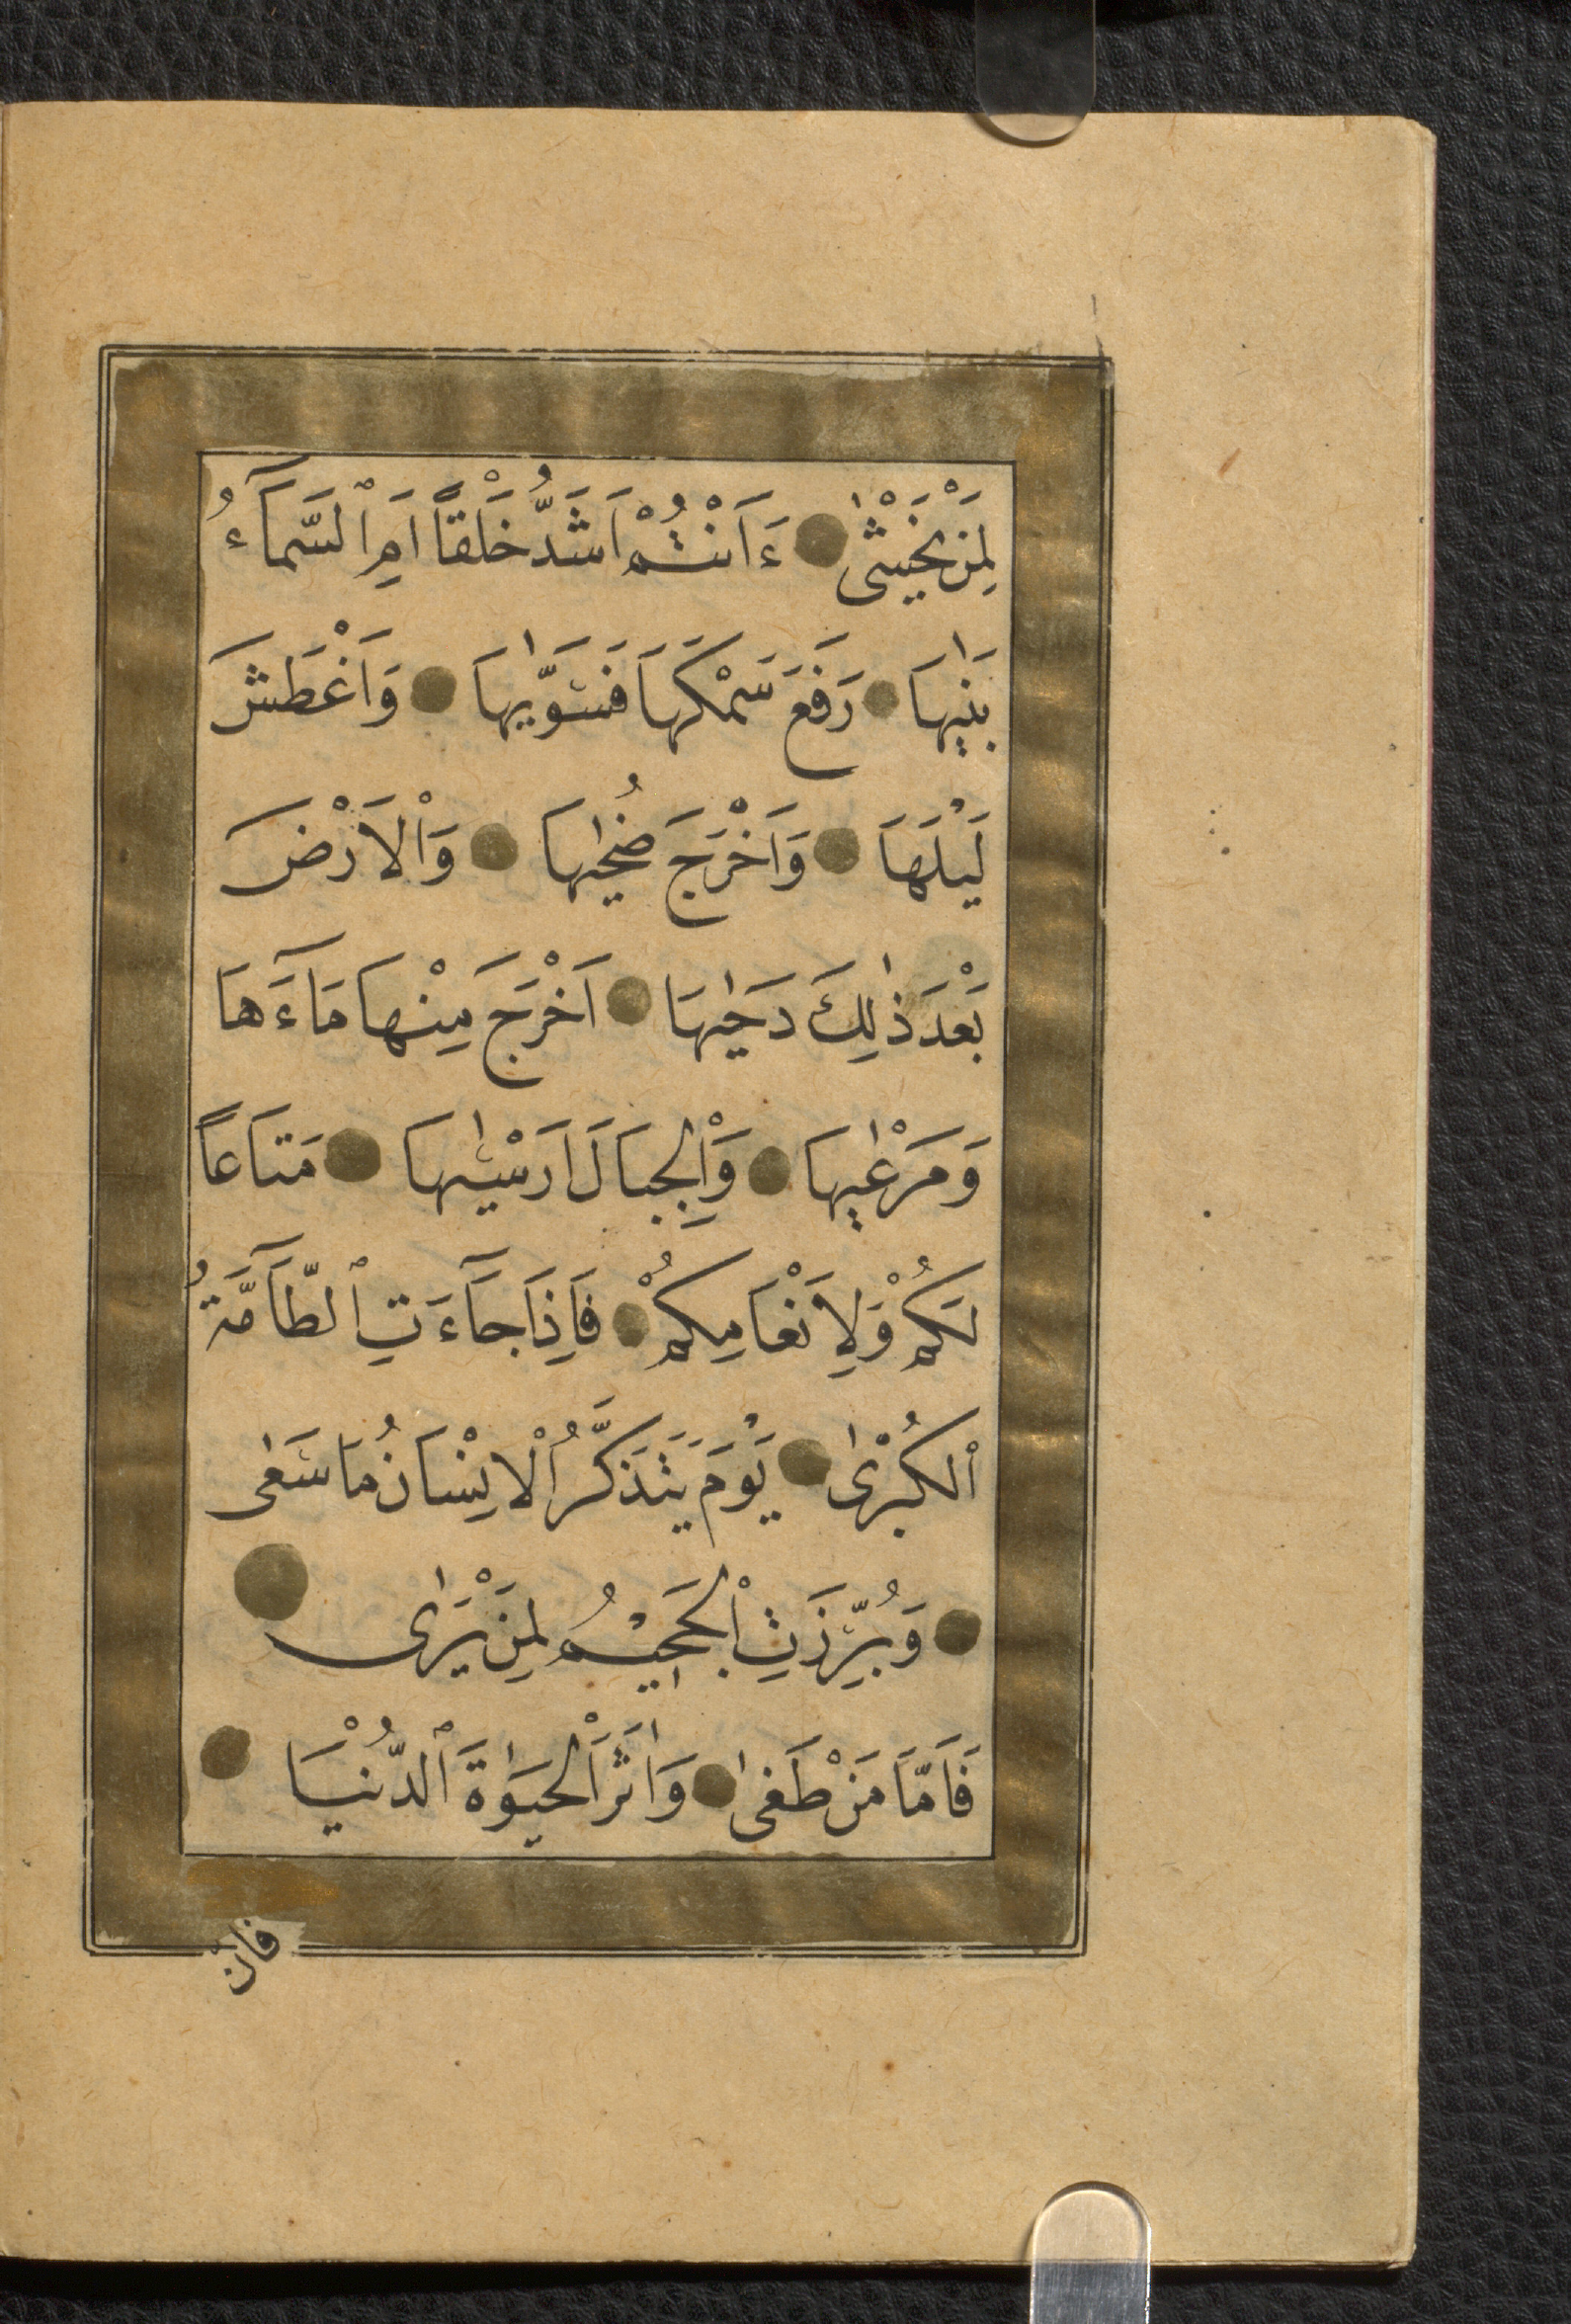 لِمَنْ يَخْشٰى ءَاَنْتُمْ اَشَدُّ خَلْقًا اَمِ السَّمَآءُ
بَنٰيهَا رَفَعَ سَمْكَهَا فَسَوّٰيهَا وَاَغْطَشَ
لَيْلَهَا وَاَخْرَجَ ضُحٰيهَا وَالْاَرْضَ
بَعْدَ ذٰلِكَ دَحٰيهَا اَخْرَجَ مِنْهَا مَآءَهَا
وَمَرْعٰيهَا وَالْجِبَالَ اَرْسٰيهَا مَتَاعًا
لَكُمْ وَلِاَنْعَامِكُمْ فَاِذَا جَآءَتِ الطَّآمَّةُ
الْكُبْرٰى يَوْمَ يَتَذَكَّرُ الْاِنْسَانُ مَا سَعٰى
وَبُرِّزَتِ الْجَحِيْمُ لِمَنْ يَرٰى
فَاَمَّا مَنْ طَغٰى وَاٰثَرَ الْحَيٰوةَ الدُّنْيَا
فان